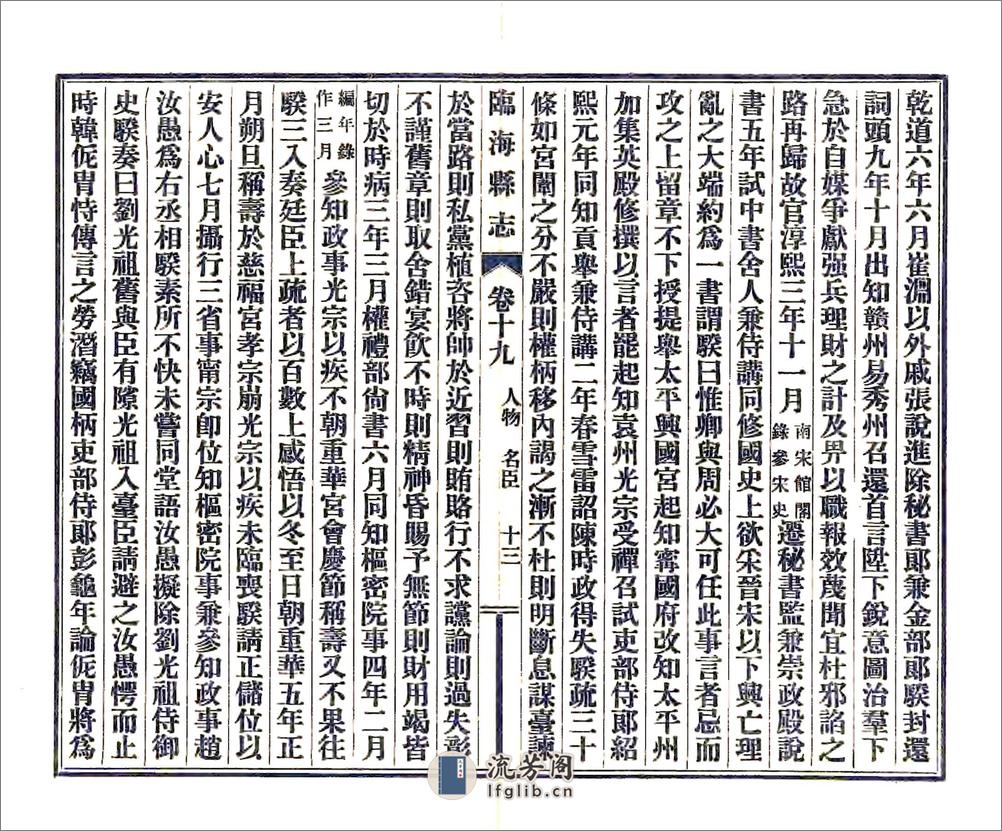 乾道六年六月崔淵以外戚張說進除秘書郎兼金部郎騤封還
詞頭九年十月出知贛州易秀州召還首言陛下銳意圖治羣下
急於自媒爭獻强兵理財之計及畀以職報效蔑聞宜杜邪諂之
路再歸故官淳熙三年十一月南宋館閣錄參宋史遷秘書監兼崇政殿說
書五年試中書舍人兼侍講同修國史上欲采晉宋以下興亡理
亂之大端約爲一書謂騤曰惟卿與周必大可任此事言者忌而
攻之上留章不下授提舉太平興國宮起知甯國府改知太平州
加集英殿修撰以言者罷起知袁州光宗受禪召試吏部侍郎紹
熙元年同知貢舉兼侍講二年春雪雷詔陳時政得失騤疏三十
條如宮闈之分不嚴則權柄移內謁之漸不杜則明斷息謀臺諫
臨海縣志 卷十九 人物 名臣 十三
於當路則私黨植咨將帥於近習則賄賂行不求讜論則過失彰
不謹舊章則取舍錯宴飲不時則精神昏賜予無節則財用竭皆
切於時病三年三月權禮部尚書六月同知樞密院事四年二月
編年錄作三月參知政事光宗以疾不朝重華宮會慶節稱壽又不果往
騤三入奏廷臣上疏者以百數上感悟以冬至日朝重華五年正
月朔旦稱壽於慈福宮孝宗崩光宗以疾未臨喪騤請正儲位以
安人心七月攝行三省事甯宗卽位知樞密院事兼參知政事趙
汝愚爲右丞相騤素所不快未嘗同堂語汝愚擬除劉光祖侍御
史騤奏曰劉光祖舊與臣有隙光祖入臺臣請避之汝愚愕而止
時韓侂胄恃傳言之勞潛竊國柄吏部侍郎彭龜年論侂胄將爲
流芳阁
lfglib.cn